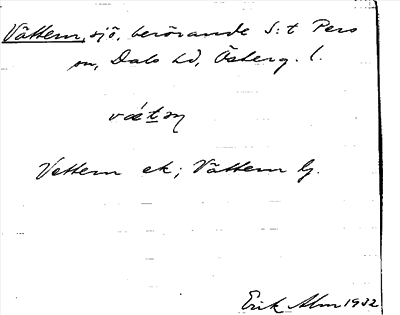 Vättern, sjö, berörande S:t Pers
sn, Dals hd, Österg. l.
vätəṇ
Vettern ek; Vättern Gg.
Erik Alm 1932